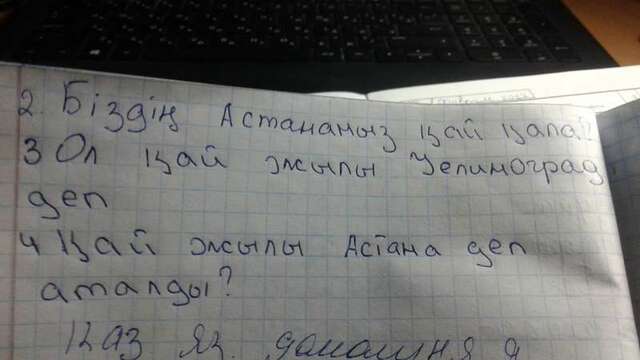 2. Біздің Астананыз қай қала?
3 Ол қай жылы Целиноград
деп
4 Қай жылы Астана деп
аталды?
Қаз яз. домашня